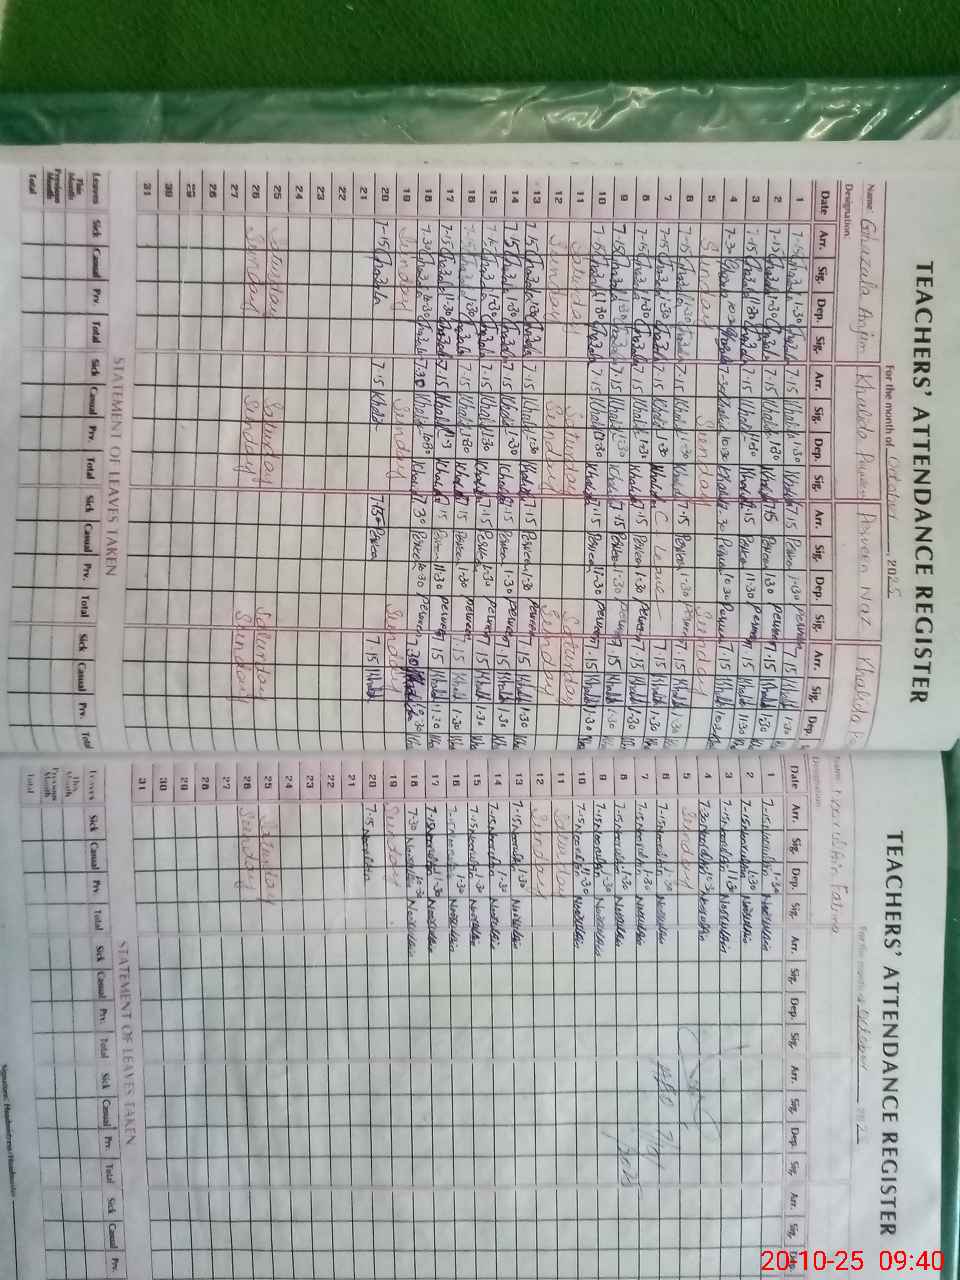 TEACHERS' ATTENDANCE REGISTER
For the month of October, 2025
Name: Ghazala Anjim Khalida Parveen Perveen Naz Khalida
Designation:
Date Arr. Sig. Dep. Sig. Arr. Sig. Dep. Sig. Arr. Sig. Dep. Sig. Arr. Sig. Dep.
1 7-15 Ghazala 1-30 Ghazala 7.15 Khalida 1-30 Khalida 7.15 Perveen 1-30 Perveen 7.15 Khalida 1-30
2 7-15 Ghazala 1-30 Ghazala 7.15 Khalida 1-30 Khalida 7.15 Perveen 1-30 Perveen 7.15 Khalida 1-30
3 7-15 Ghazala 11-30 Ghazala 7.15 Khalida 11-30 Khalida 7.15 Perveen 11-30 Perveen 7.15 Khalida 11-30
4 7-30 Ghazala 10-30 Ghazala 7-30 Khalida 10-30 Khalida 7.30 Perveen 10-30 Perveen 7.15 Khalida
5 Sunday Sunday Sunday
6 7-15 Ghazala 1-30 Ghazala 7.15 Khalida 1-30 Khalida 7.15 Perveen 1-30 Perveen 7.15 Khalida 1-30
7 7-15 Ghazala 1-30 Ghazala 7.15 Khalida 1-30 Khalida C Leave 7.15 Khalida 1-30
8 7-15 Ghazala 1-30 Ghazala 7.15 Khalida 1-30 Khalida 7.15 Perveen 1-30 Perveen 7.15 Khalida 1-30
9 7-15 Ghazala 1-30 Ghazala 7.15 Khalida 1-30 Khalida 7.15 Perveen 1-30 Perveen 7.15 Khalida 1-30
10 7.15 Ghazala 11-30 Ghazala 7.15 Khalida 11-30 Khalida 7.15 Perveen 11-30 Perveen 7.15 Khalida 11-30
11 Saturday Saturday Saturday
12 Sunday Sunday Sunday
13 7.15 Ghazala 1-30 Ghazala 7.15 Khalida 1-30 Khalida 7.15 Perveen 1-30 Perveen 7.15 Khalida 1-30
14 7.15 Ghazala 1-30 Ghazala 7.15 Khalida 1-30 Khalida 7.15 Perveen 1-30 Perveen 7.15 Khalida 1-30
15 7.15 Ghazala 1-30 Ghazala 7.15 Khalida 1-30 Khalida 7.15 Perveen 1-30 Perveen 7.15 Khalida 1-30
16 7.15 Ghazala 1-30 Ghazala 7.15 Khalida 1-30 Khalida 7.15 Perveen 1-30 Perveen 7.15 Khalida 1-30
17 7-15 Ghazala 11-30 Ghazala 7.15 Khalida Khalida 7.15 Perveen 11-30 Perveen 7.15 Khalida 11-30
18 7.30 Ghazala 10-30 Ghazala 7.30 Khalida 10-30 Khalida 7.30 Perveen 10-30 Perveen 7.30 Khalida 10-30
19 Sunday Sunday Sunday
20 7-15 Ghazala 7.15 Khalida 7.15 Perveen 7.15 Khalida
21
22
23
24
25 Saturday Saturday Saturday
26 Sunday Sunday Sunday
27
28
29
30
31
STATEMENT OF LEAVES TAKEN
Leaves Sick Casual Prv. Total Sick Casual Prv. Total Sick Casual Prv. Total Sick Casual Prv. Total
This Month
Previous Month
Total
TEACHERS' ATTENDANCE REGISTER
For the month of October 2025
Name: Noorulain Fatima
Designation
Date Arr. Sig. Dep. Sig. Arr. Sig. Dep. Sig. Arr. Sig. Dep. Sig. Arr. Sig. Dep.
1 7-15 Noorulain 1-30 Noorulain
2 7-15 Noorulain 1-30 Noorulain
3 7-15 Noorulain 11-30 Noorulain
4 7-30 Noorulain 10-30 Noorulain
5 Sunday
6 7-15 Noorulain 1-30 Noorulain
7 7-15 Noorulain 1-30 Noorulain
8 7-15 Noorulain 1-30 Noorulain
9 7-15 Noorulain 1-30 Noorulain
10 7-15 Noorulain 11-30 Noorulain
11 Saturday
12 Sunday
13 7-15 Noorulain 1-30 Noorulain
14 7-15 Noorulain 1-30 Noorulain
15 7-15 Noorulain 1-30 Noorulain
16 7-15 Noorulain 1-30 Noorulain
17 7-15 Noorulain 11-30 Noorulain
18 7-30 Noorulain 10-30 Noorulain
19 Sunday
20 7-15 Noorulain
21
22
23
24
25 Saturday
26 Sunday
27
28
29
30
31
STATEMENT OF LEAVES TAKEN
Leaves Sick Casual Prv. Total Sick Casual Prv. Total Sick Casual Prv.
This Month
Previous Month
Total
Signature: Headmistress/Headmaster
20-10-25 09:40